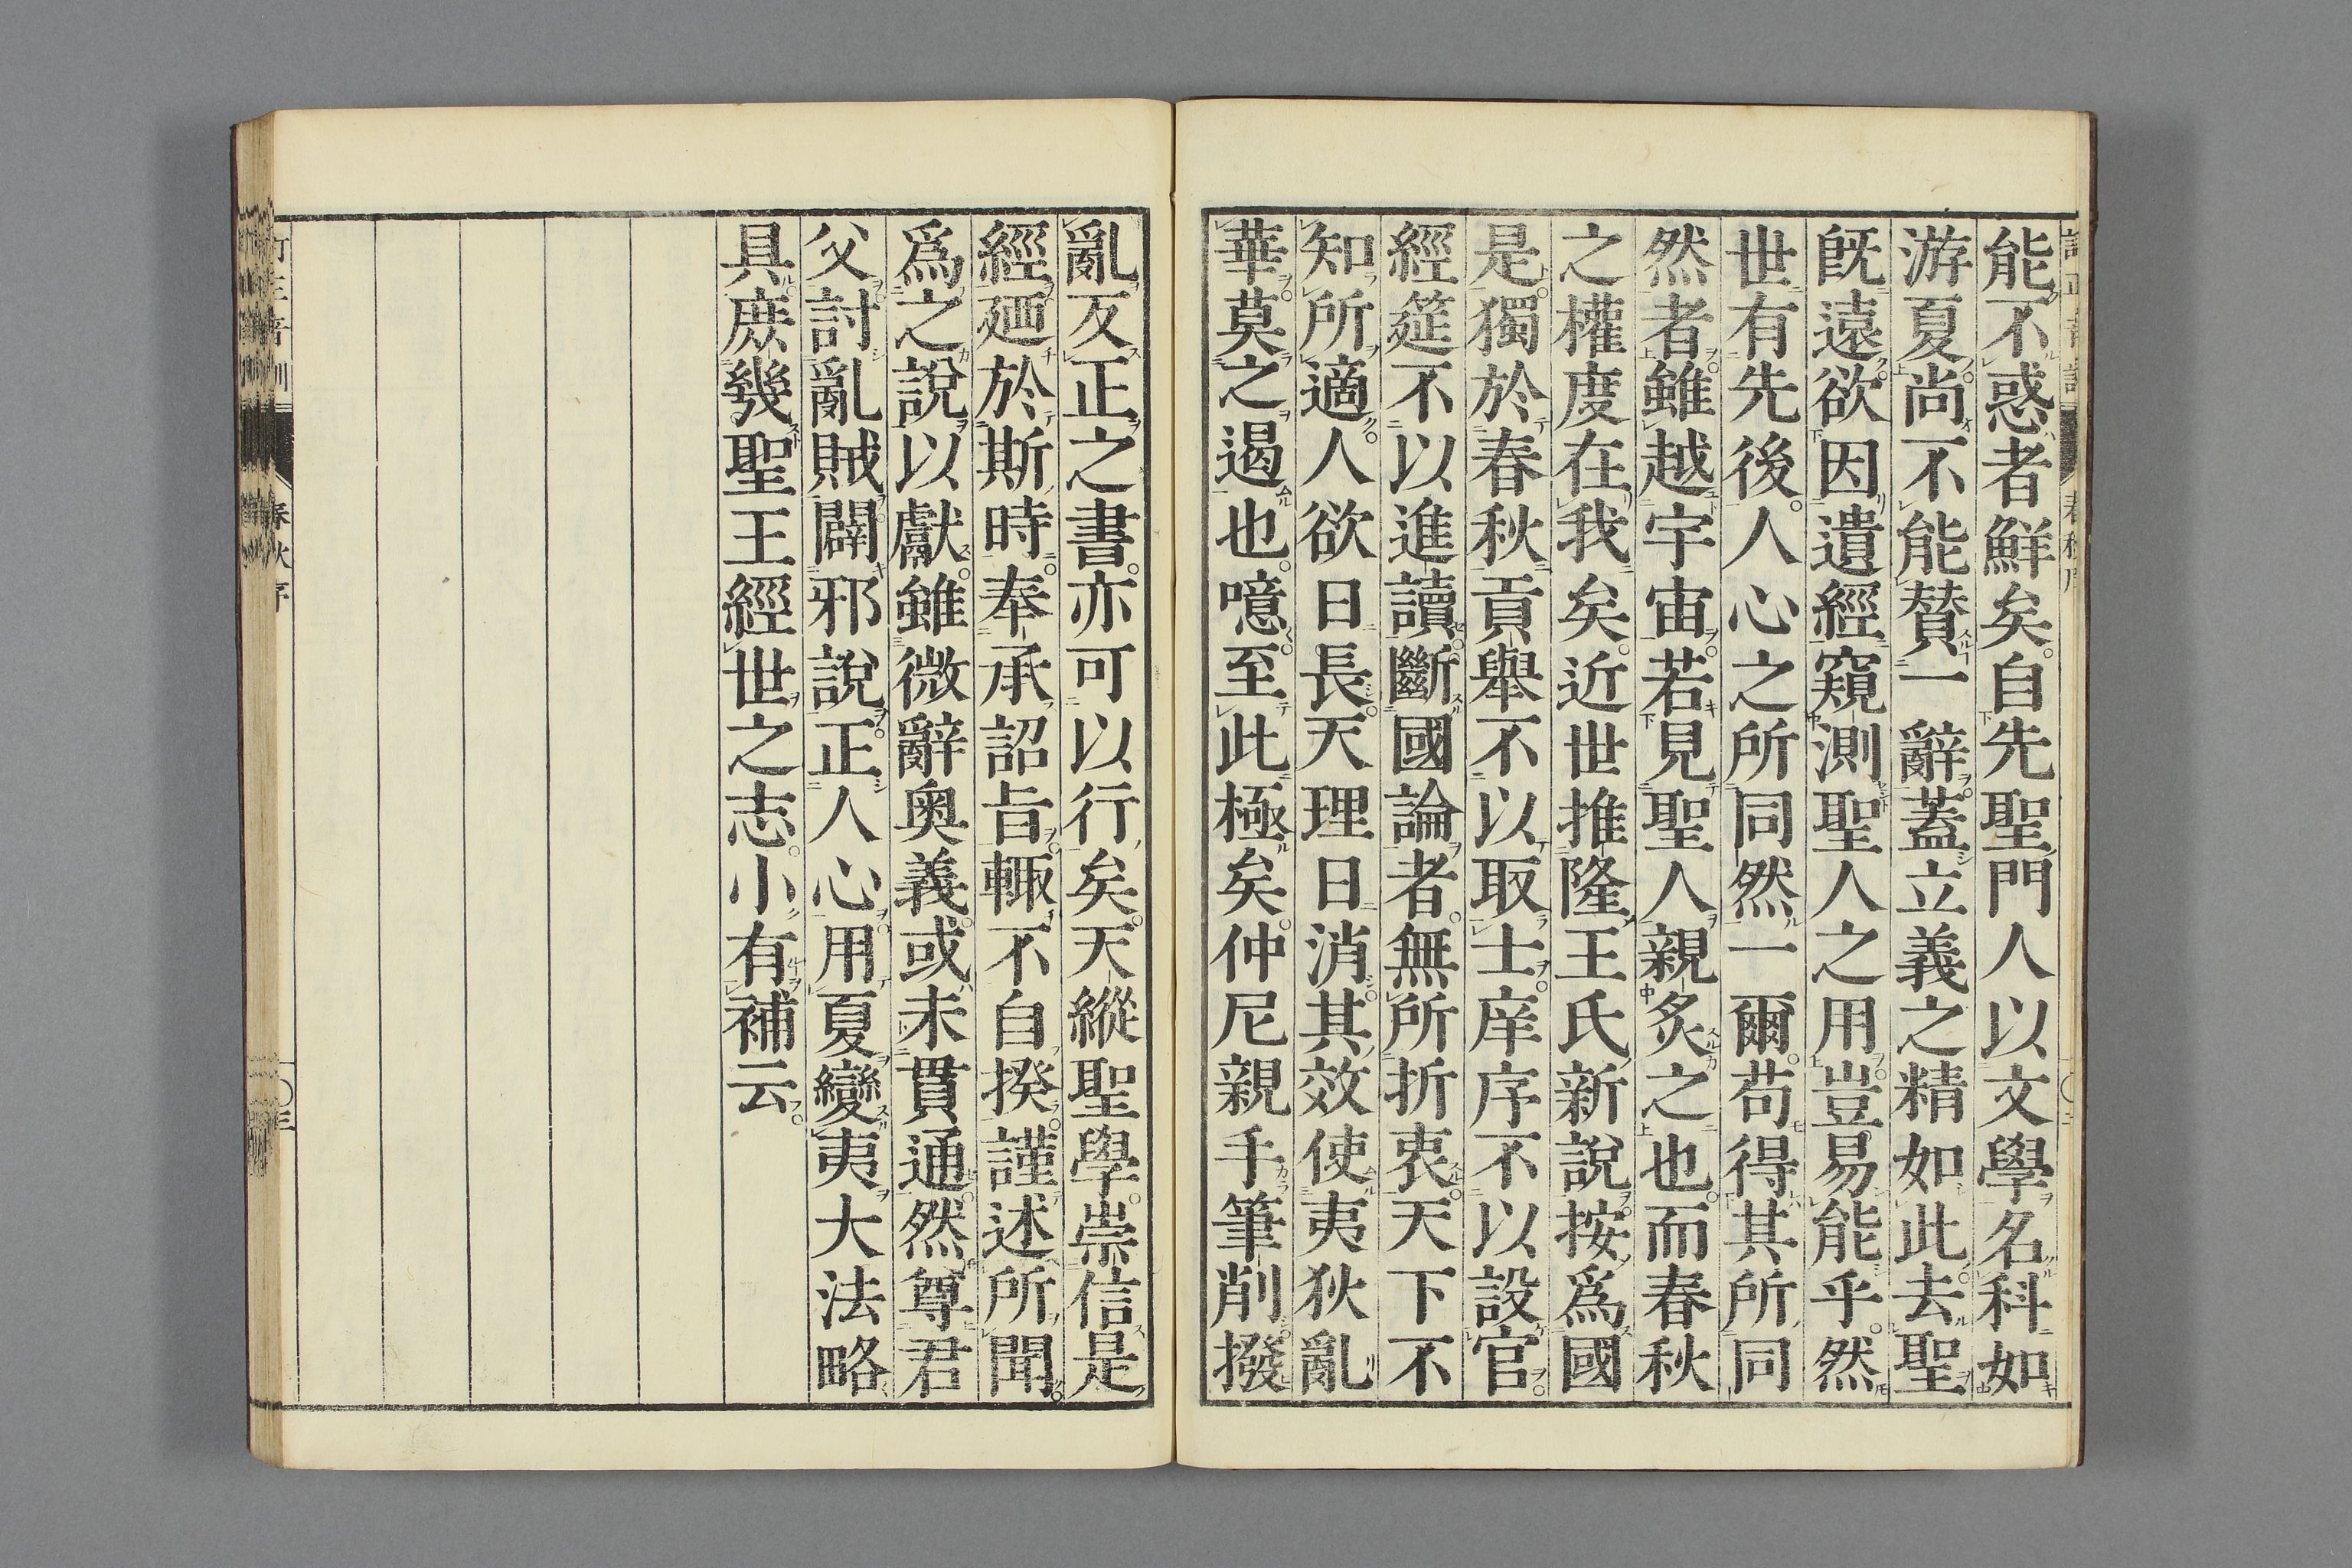 能不惑者鮮矣。自先聖門人以文學名科如
游夏尚不能賛一辭蓋立義之精如此去聖
既遠欲因遺經窺測聖人之用豈易能乎。然
世有先後。人心之所同然一爾。苟得其所同
然者雖越宇宙若見聖人親炙之也。而春秋
之權度在我矣。近世推隆王氏新說按爲國
是獨於春秋貢舉不以取士庠序不以設官
經筵不以進讀斷國論者。無所折衷天下不
知所適人欲日長天理日消其效使夷狄亂
華莫之遏也。噫至此極矣。仲尼親手筆削撥
亂反正之書。亦可以行矣。天縱聖學。崇信是
經廼於斯時。奉承詔旨輙不自揆謹述所聞
爲之說以獻。雖微辭奥義。或未貫通然尊君
父討亂賊闢邪說正人心用夏變夷大法略
具庶幾聖王經世之志。小有補云
春秋序
〇三